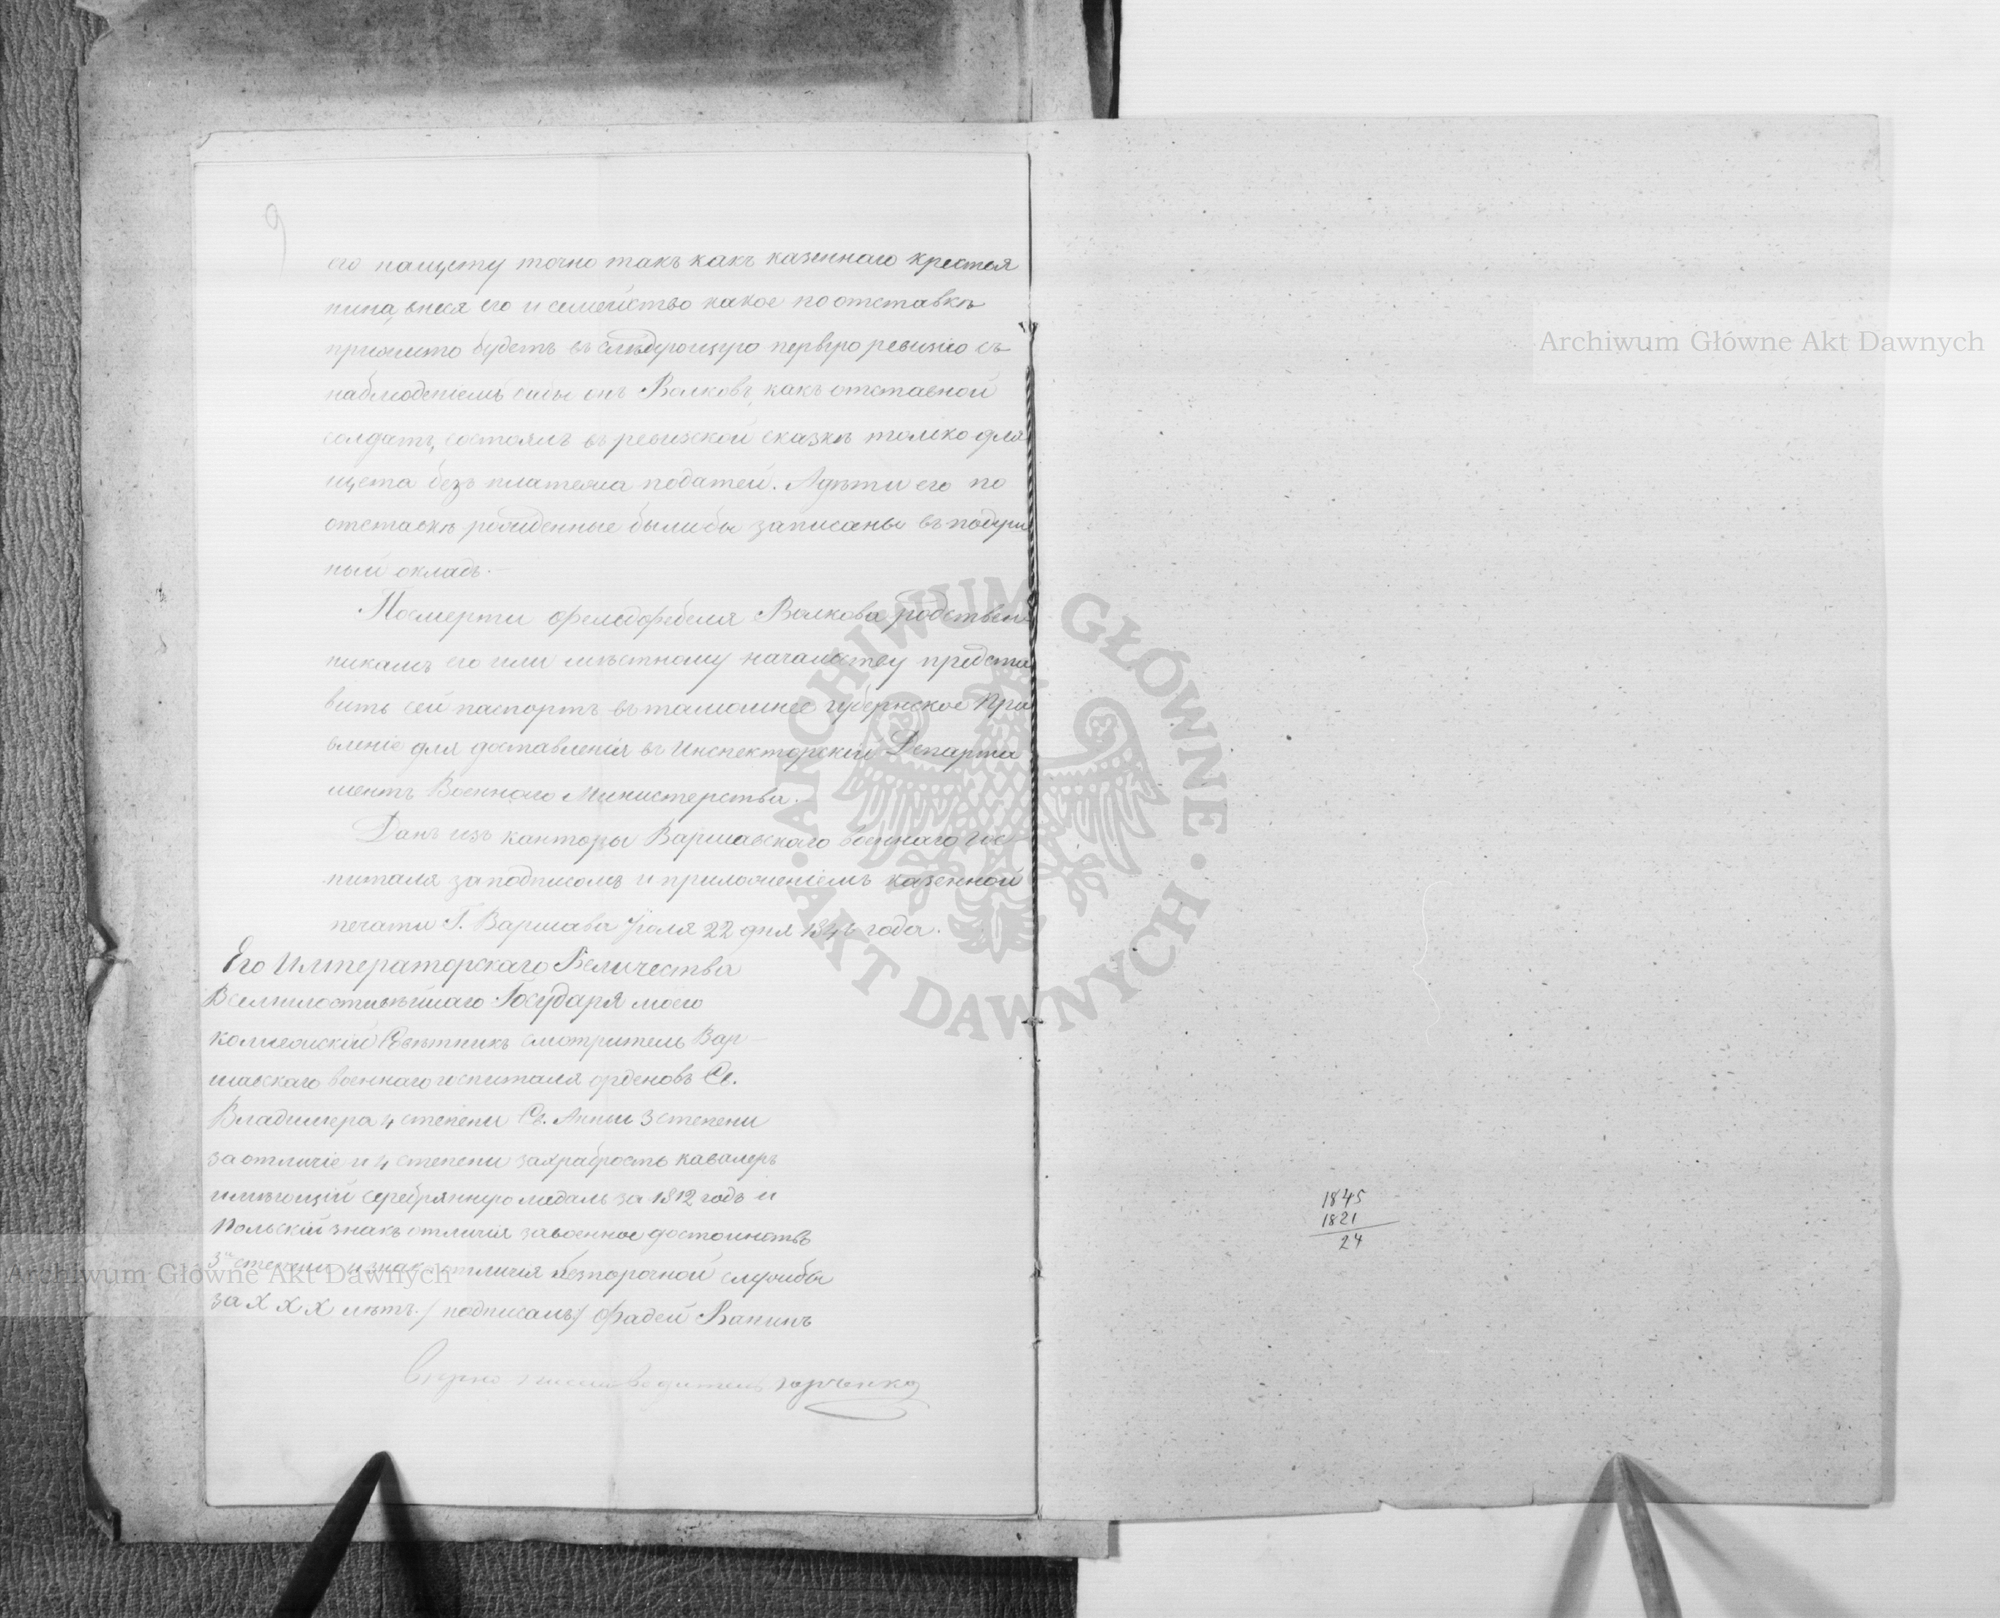 9
его пащету точно такъ какъ казеннаго крестья
нина, внеся его и семейство какое по отставкѣ
прижито будетъ въ слѣдующую первую ревизію съ
наблюденіемъ дабы онъ Волковъ, какъ отставной
солдатъ, состоялъ въ ревизской сказкѣ только для
щета безъ платежа податей. Адѣти его по
отставкѣ рожденные былибы записаны въ подуш
ный окладъ.
Посмерти фельдфебеля Волкова родствен
никамъ его или мѣстному начальству предста
вить сей паспортъ въ тамошнее губернское Пра
вленіе для доставленія въ Инспекторскій Департа
ментъ Военнаго Министерства.
Данъ изъ канторы Варшавскаго военнаго гос
питаля заподписомъ и приложеніемъ казенной
печати Г. Варшава Іюля 22 дня года.
Его Императорскаго Величества
Всемилостивѣйшаго Государя моего
Колежскій Совѣтникъ смотритель Вар
шавскаго военнаго госпиталя орденовъ Св.
Владимера 4 степени Св. Анны 3 степени
заотличіе и 4 степени захрабрость кавалеръ
имѣющій серебрянную медаль за 1812 годъ и
Польскій знакъ отличія завоенное достоинство
3й степени и знакъ отличія безпорочной службы
за XXX лѣтъ. / подписалъ / Фадей Ванинъ
Вѣрно писмоводитель
1845
1821
24
Archiwum Główne Akt Dawnych
Archiwum Główne Akt Dawnych
ARCHIWUM GŁÓWNE · AKT DAWNYCH ·